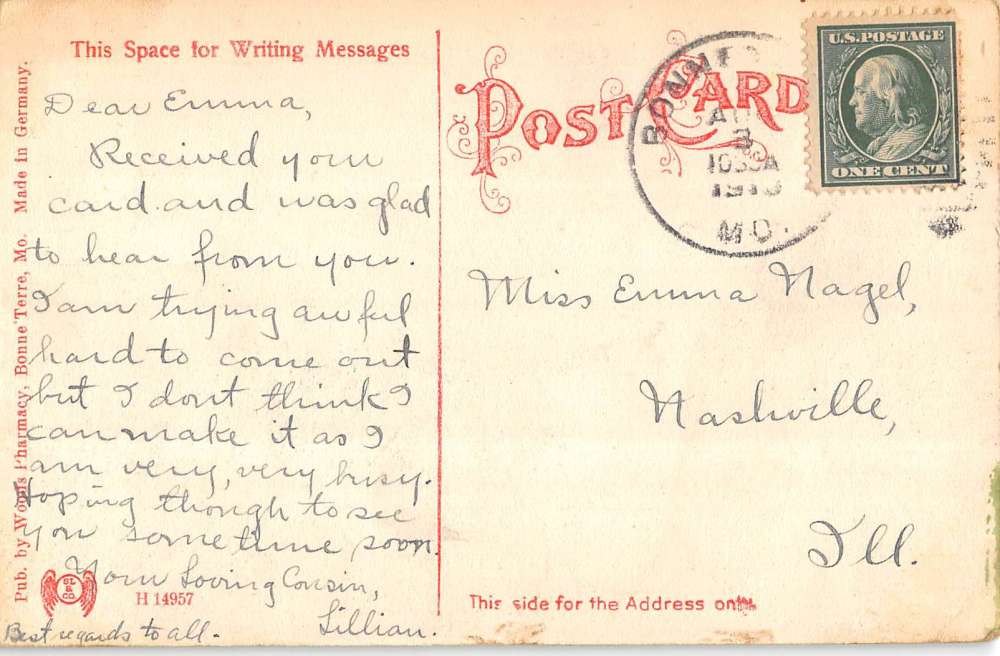 This Space for Writing Messages
Dear Emma,
Received your
card and was glad
to hear from you.
I am trying awful
hard to come out
but I dont think I
can make it as I
am very, very busy.
Hoping though to see
you sometime soon.
Your Loving Cousin,
Lillian.
Best regards to all.
Pub. by Woods Pharmacy, Bonne Terre, Mo. Made in Germany.
H 14957
POST CARD
AU
3
1030A
MO.
U.S. POSTAGE
ONE CENT
Miss Emma Nagel,
Nashville,
Ill.
This side for the Address only.